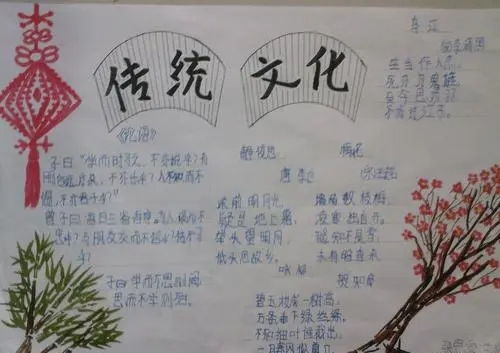 传统 文化
《论语》
子曰:"学而时习之,不亦说乎?有
朋自远方来,不亦乐乎?人不知而不
愠,不亦君子乎?"
曾子曰:吾日三省吾身。为人谋而不
忠乎?与朋友交而不信乎?传不习
乎?
子曰:学而不思则罔,
思而不学则殆。
静夜思
唐 李白
床前明月光,
疑是地上霜,
举头望明月,
低头思故乡。
梅花
宋 王安石
墙角数枝梅,
凌寒独自开。
遥知不是雪,
咏柳
贺知章
碧玉妆成一树高,
万条垂下绿丝绦。
不知细叶谁裁出,
二月春风似剪刀。
李清照
生当作人杰,
死亦为鬼雄
至今思项羽
不肯过江东。